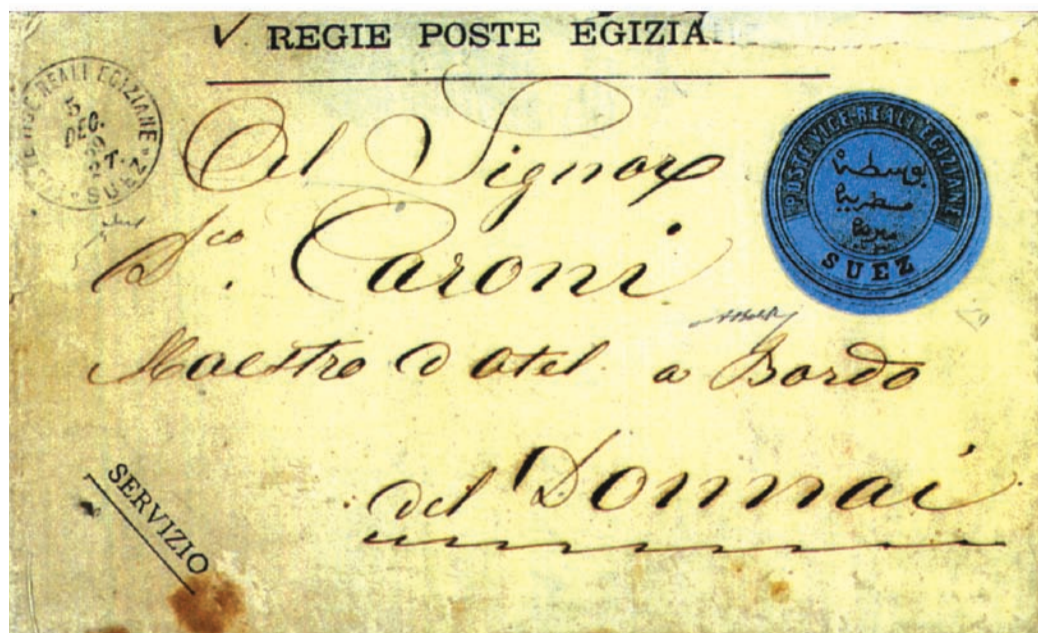 REGIE POSTE EGIZIA
POSTE VICE REALI EGIZIANE
5
DEC.
SUEZ
Al Signor
D.co Caroni
Maestro d'Otel a Bordo
del Donnai
SERVIZIO
POSTE VICE REALI EGIZIANE
بوسطة
مصرية
SUEZ